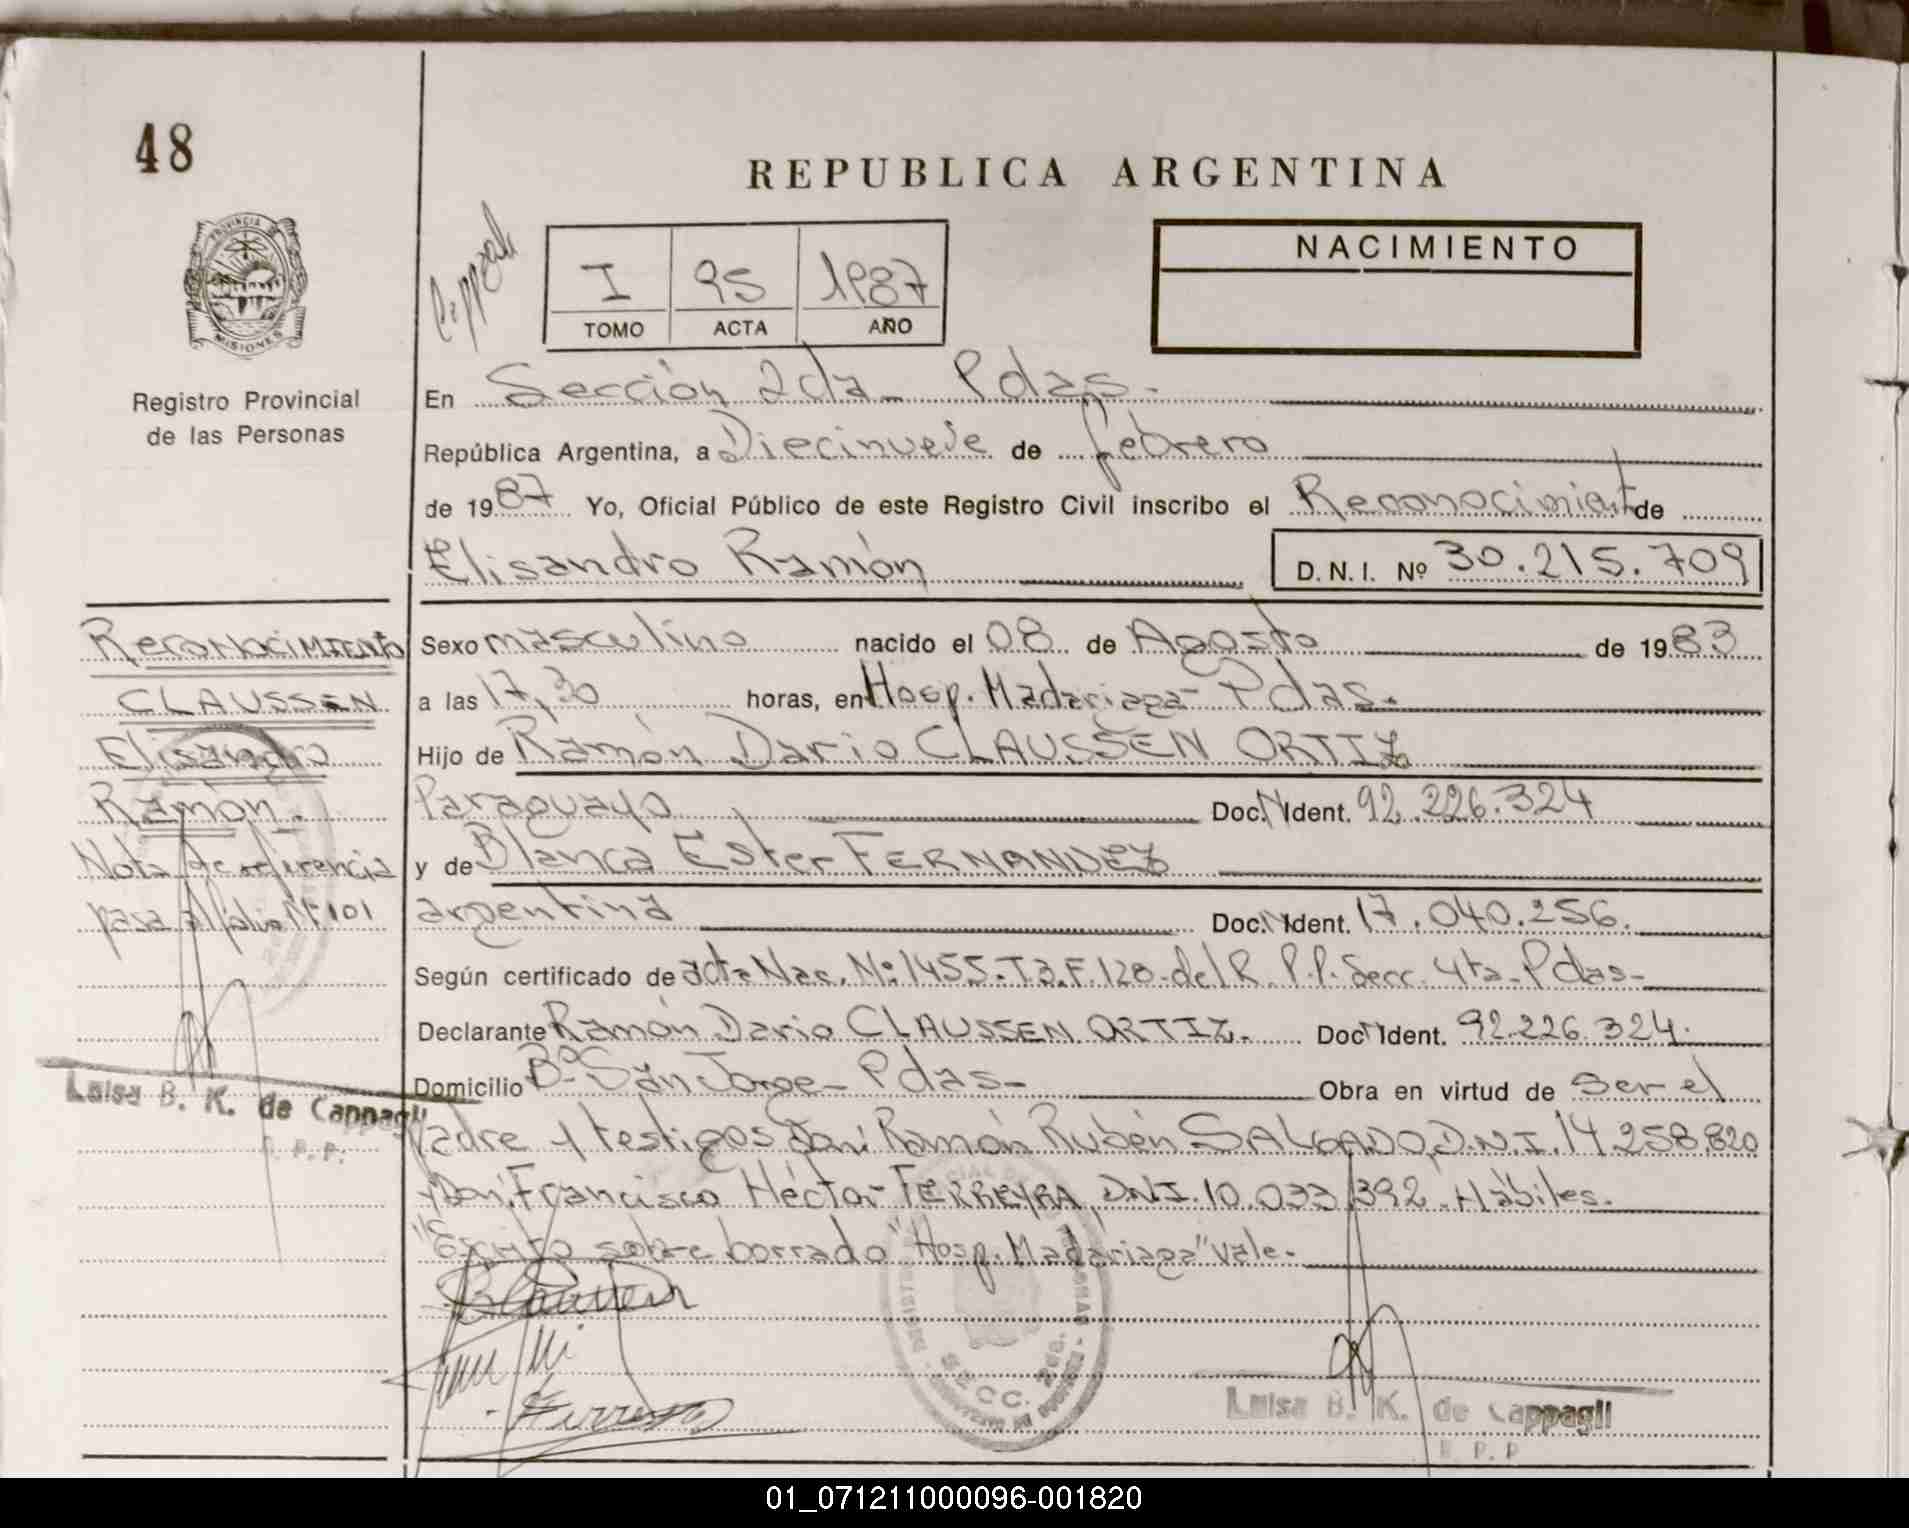 48
REPUBLICA ARGENTINA
PROVINCIA DE
MISIONES
Registro Provincial
de las Personas
I 95 1987
TOMO ACTA AÑO
NACIMIENTO
En Sección 2da_ Pdas.
República Argentina, a Diecinueve de febrero
de 1987 Yo, Oficial Público de este Registro Civil inscribo el Reconocimient de
Elisandro Ramón
D.N.I. Nº 30.215.709
Reconocimiento
CLAUSSEN
Elisandro
Ramón.
Nota de referencia
pasa al folio Nº 101
Luisa B. K. de Cappagli
R.P.P.
Sexo masculino nacido el 08 de Agosto de 1983
a las 17,30 horas, en Hosp. Madariaga - Pdas.
Hijo de Ramón Dario CLAUSSEN ORTIZ
Paraguayo Doc. N Ident. 92.226.324
y de Blanca Ester FERNANDEZ
argentina Doc. N Ident. 17.040.256.
Según certificado de acta Nac. Nº 1455-T3.F.128-del R.P.P. Secc. 4ta- Pdas-
Declarante Ramón Dario CLAUSSEN ORTIZ. Doc N Ident. 92.226.324.
Domicilio Bº San Jorge - Pdas - Obra en virtud de ser el
Padre y testigos Don: Ramón Rubén SALGADO, D.N.I. 14.258.820
y Don: Francisco Héctor FERREYRA, D.N.I. 10.033.392. Hábiles.
"Escrito sobre borrado "Hosp. Madariaga" vale.
SECC. 2da.
Luisa B. K. de Cappagli
R.P.P
01_071211000096-001820